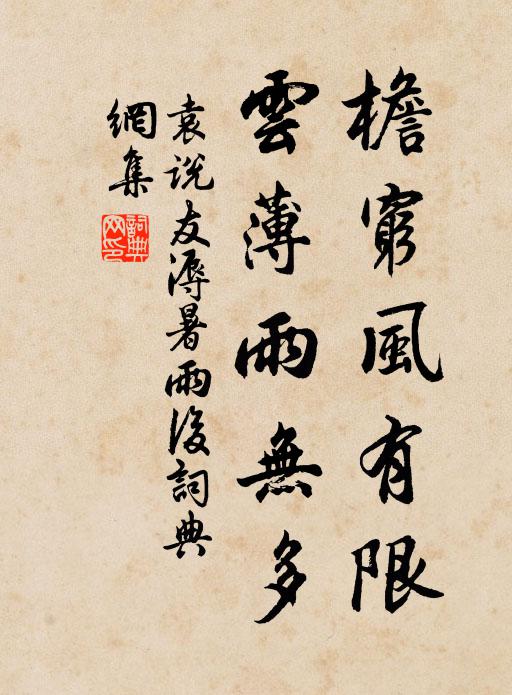 檐窮風有限
雲薄雨無多
袁说友溽暑雨後詞典
網集
詞典
网印